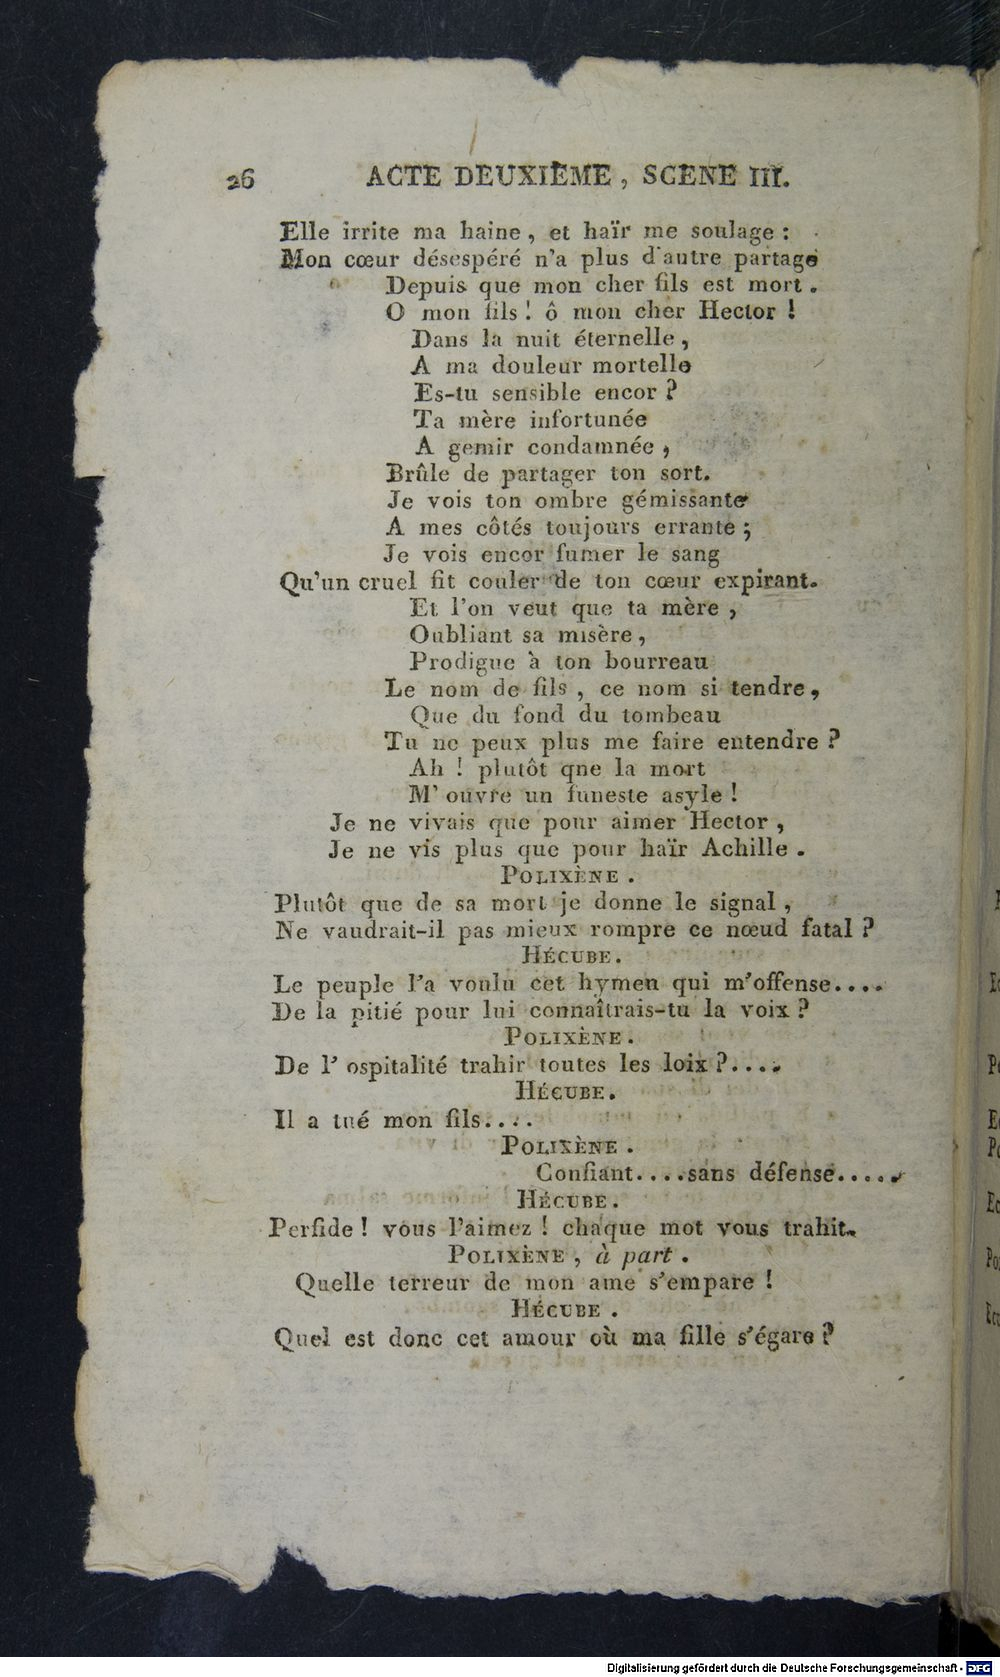 26 ACTE DEUXIÈME, SCENE III.
Elle irrite ma haine, et haïr me soulage :
Mon cœur désespéré n'a plus d'autre partage
Depuis que mon cher fils est mort.
O mon fils ! ô mon cher Hector !
Dans la nuit éternelle,
A ma douleur mortelle
Es-tu sensible encor ?
Ta mère infortunée
A gemir condamnée,
Brûle de partager ton sort.
Je vois ton ombre gémissante
A mes côtés toujours errante ;
Je vois encor fumer le sang
Qu'un cruel fit couler de ton cœur expirant.
Et l'on veut que ta mère,
Oubliant sa misère,
Prodigue à ton bourreau
Le nom de fils, ce nom si tendre,
Que du fond du tombeau
Tu ne peux plus me faire entendre ?
Ah ! plutôt qne la mort
M' ouvre un funeste asyle !
Je ne vivais que pour aimer Hector,
Je ne vis plus que pour haïr Achille.
POLIXÈNE.
Plutôt que de sa mort je donne le signal,
Ne vaudrait-il pas mieux rompre ce nœud fatal ?
HÉCUBE.
Le peuple l'a voulu cet hymen qui m'offense....
De la pitié pour lui connaîtrais-tu la voix ?
POLIXÈNE.
De l' ospitalité trahir toutes les loix ?....
HÉCUBE.
Il a tué mon fils....
POLIXÈNE.
Confiant....sans défense.....
HÉCUBE.
Perfide ! vous l'aimez ! chaque mot vous trahit.
POLIXÈNE, à part.
Quelle terreur de mon ame s'empare !
HÉCUBE.
Quel est donc cet amour où ma fille s'égare ?
Digitalisierung gefördert durch die Deutsche Forschungsgemeinschaft - DFG